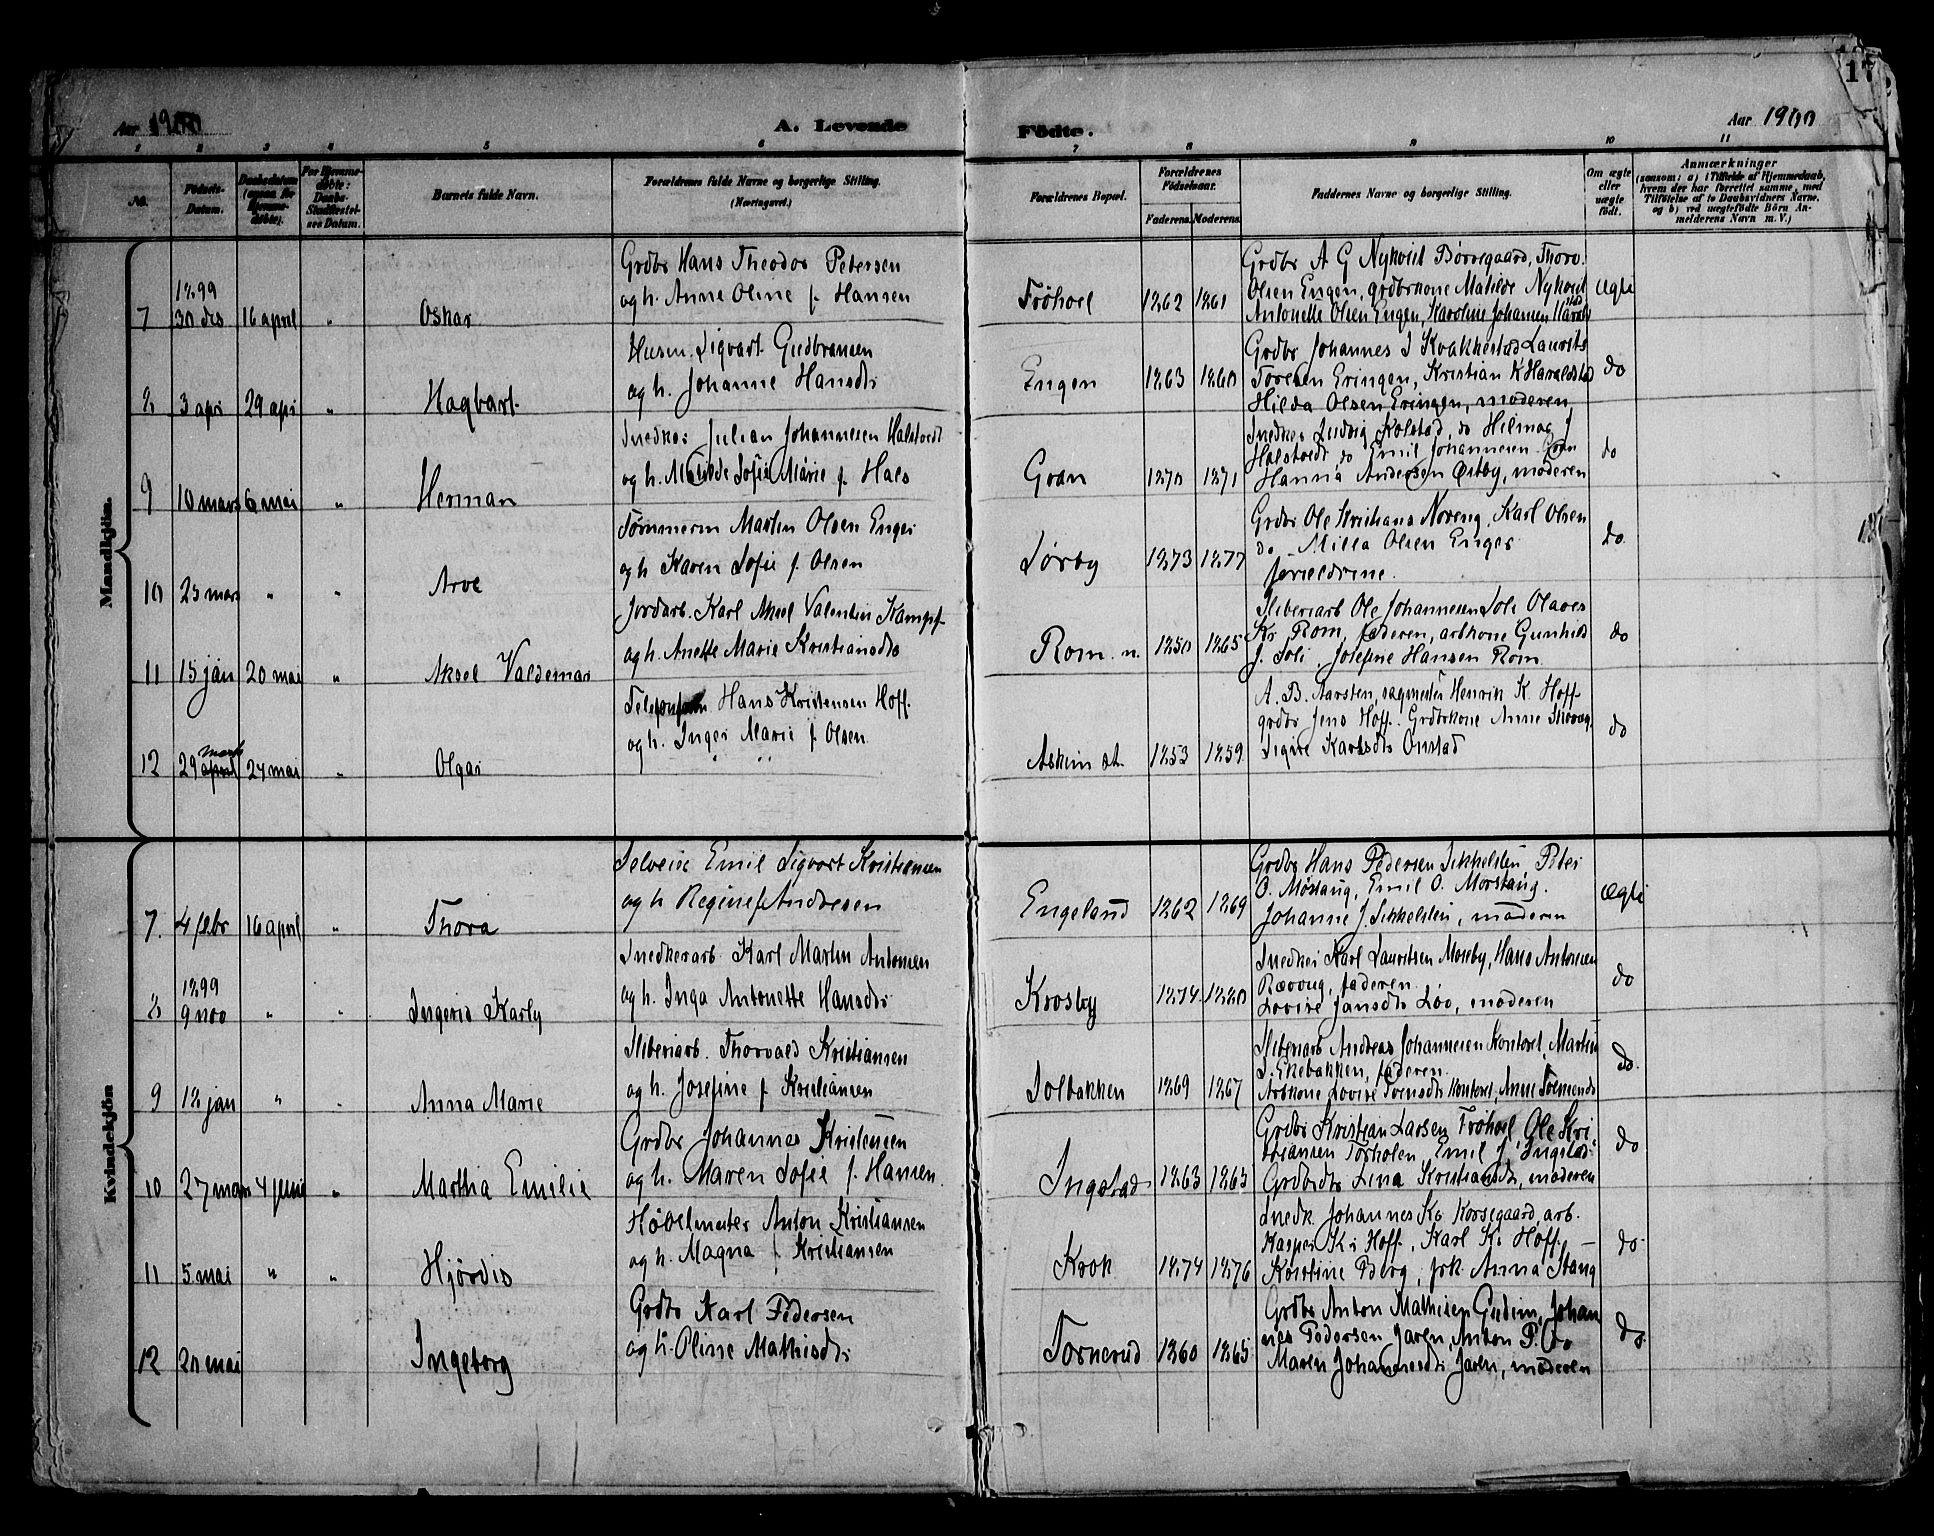 Aar 1900
A. Levende
Födte.
Aar 1900
17
1 2 3 4 5 6 7 8 9 10 11
No.
Födsels-
Datum.
Daabsdatum
(ogsaa for
Hjemme-
döbte).
For Hjemme-
döbte:
Daabs-
Stadfæstel-
ses Datum.
Barnets fulde Navn.
Forældrenes fulde Navne og borgerlige Stilling.
(Næringsvei.)
Forældrenes Bopæl.
Forældrenes
Födselsaar.
Faderens. Moderens.
Faddernes Navne og borgerlig Stilling.
Om ægte
eller
uægte
födt.
Anmærkninger
(saasom: a) i Tilfælde af Hjemmedaab,
hvem der har forrettet samme, med
Tilföielse af to Daabsvidners Navne,
og b) ved uægtefödte Börn An-
melderens Navn m. V.)
Mandkjön.
7 1899 30 des 16 april " Oskar
Grdbr Hans Theodor Petersen
og h. Anne Oline f. Hansen
Tröhoel 1862 1861
Grdbr A G Nykvist Börsegaard, Thorv.
Olsen Engen, grdbrkone Matilde Nykvist
Antonette Olsen Engen, Karoline Johansen
Ægte
8 3 apr 29 apr " Hagbart
Husm. Sigvart Gudbransen
og h. Johanne Hansdtr
Engen 1863 1860
Grdbr Johannes J Kvakkestad Laurits
Toresen Eringen, Kristian K Haraldstad
Hilda Olsen Eringen, moderen
do
9 10 mars 6 mai " Herman
Snedker Julian Johannesen Halstvedt
og h. Matilde Sofie Marie f. Hals
Gran 1870 1871
Snedker Ludvig Kolstad, do Hilmar J
Halstvedt do Emil Johannesen Gran
Hanna Andersen Østby, moderen
do
10 25 mars " " Arve
Tømmerm Martin Olsen Enger
og h Karen Sofie f. Olsen
Sørby 1873 1877
Grdbr Ole Kristians Noreng, Karl Olsen
do Milla Olsen Enger
forældrene.
do
11 15 jan 20 mai " Aksel Valdemar
Jordarb. Karl Aksel Valentin Kampf
og h. Anette Marie Kristiansdtr
Rom. n. 1850 1865
Sliberiarb Ole Johannesen Soli Olaves
Kr Rom, faderen, arbkone Gunhild
J. Soli, Josefine Hansen Rom
do
12 29 mars april 24 mai " Olgar
Hans Kristensen Hoff
og h. Inger Marie f. Olsen
Askim st. 1853 1859
A. B. Aarsten, sagmester Henrik K. Hoff
grdbr Jens Hoff. Grdbrkone Anne
Sigire Karlsdtr Onstad
do
Kvindekjön
7. 4 febr 16 april " Thora
Selveier Emil Sigvart Kristiansen
og h Regine f. Andresen
Engelund 1862 1869
Grdbr Hans Pedersen Sekkelsten Peter
O. Mörstaug, Emil O. Morstaug.
Johanne J. Sekkelsten, moderen
Ægte
8 1899 9 nov " " Ingerid Karly
Snedkerarb Karl Martin Antonsen
og h. Inga Antonette Hansdtr
Krosby 1874 1880
Snedker Karl Lauritsen Moseby, Hans Antonsen
Rævaug, faderen.
Lovise Jansdtr Løv, moderen
do
9 12 jan " " Anna Marie
Sliberiarb. Thorvald Kristiansen
og h. Josefine f. Kristiansen
Solbakken 1869 1867
Sliberiarb Andreas Johannesen Kontoret, Martin
S. Ekebakken, faderen.
Arbkone Lovise Svensdtr Kontoret, Anne
do.
10 27 mars 4 juni " Martha Emilie
Grdbr Johannes Kristensen
og h. Maren Sofie f. Hansen.
Ingstad 1863 1865
Grdbr Kristian Larsen Tröhoel, Ole Kri
stiansen Torholen, Emil J. Ingstad
Grdbrdtr Lina Kristiansdtr, moderen
do
11 5 mai " " Hjördis
Höbelmester Anton Kristiansen
og h. Magna f. Kristiansen
Krok 1874 1876
Snedk. Johannes Kr Korsegaard, arb.
Kasper Kr Hoff, Karl Kr Hoff, —
Kristine Berg, frk. Anna Stang
do
12 20 mai Ingeborg
Grdbr Karl Pedersen
og h. Oline Mathisdtr
Tornerud 1860 1865
Grdbr Anton Mathisen Gudim, Johan
nes Pedersen Jaren, Anton P. do
Maren Johannesdtr Jaren, moderen
do.